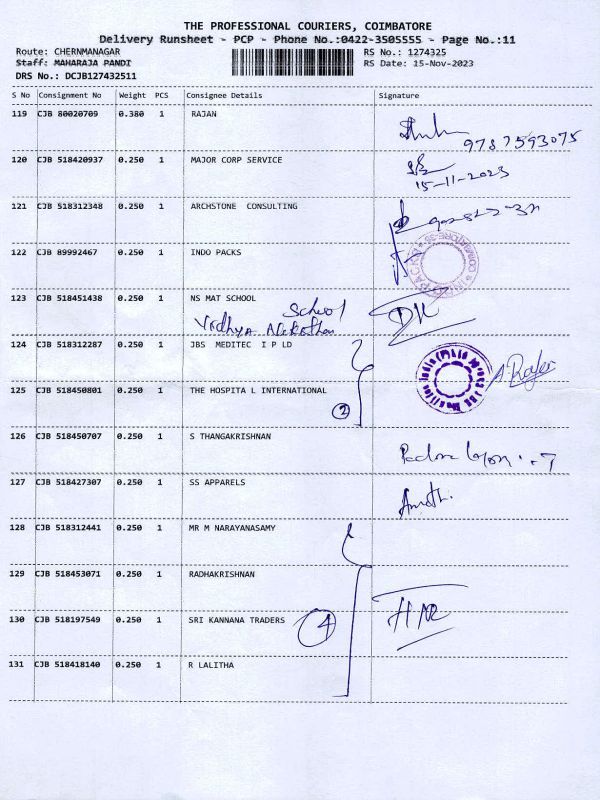 THE PROFESSIONAL COURIERS, COIMBATORE
Delivery Runsheet - PCP - Phone No.:0422-3505555 - Page No.:11
Route: CHERNMANAGAR RS No.: 1274325
Staff: MAHARAJA PANDI RS Date: 15-Nov-2023
DRS No.: DCJB127432511
S No Consignment No Weight PCS Consignee Details Signature
119 CJB 80020709 0.380 1 RAJAN
9787593075
120 CJB 518420937 0.250 1 MAJOR CORP SERVICE
15-11-2023
121 CJB 518312348 0.250 1 ARCHSTONE CONSULTING
122 CJB 89992467 0.250 1 INDO PACKS
123 CJB 518451438 0.250 1 NS MAT SCHOOL
School
Vidhya
124 CJB 518312287 0.250 1 JBS MEDITEC I P LD
125 CJB 518450801 0.250 1 THE HOSPITA L INTERNATIONAL
2
126 CJB 518450707 0.250 1 S THANGAKRISHNAN
127 CJB 518427307 0.250 1 SS APPARELS
128 CJB 518312441 0.250 1 MR M NARAYANASAMY
129 CJB 518453071 0.250 1 RADHAKRISHNAN
130 CJB 518197549 0.250 1 SRI KANNANA TRADERS
4
131 CJB 518418140 0.250 1 R LALITHA